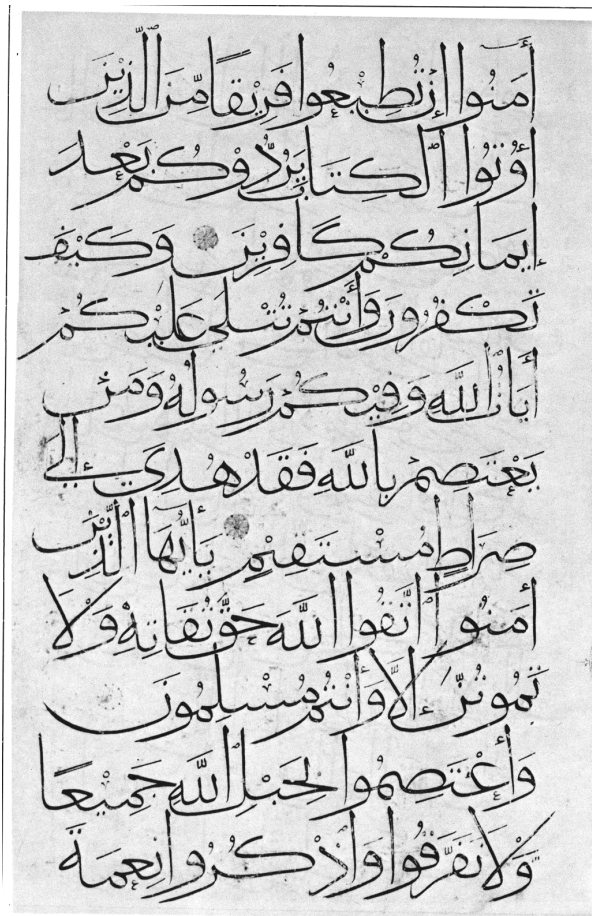 أَمَنُوا إِنْ تُطِيْعُوا فَرِيْقًا مِّنَ الَّذِيْنَ
أُوْتُوا الْكِتَابَ يَرُدُّوْكُمْ بَعْدَ
إِيمَانِكُمْ كَافِرِيْنَ وَكَيْفَ
تَكْفُرُونَ وَأَنْتُمْ تُتْلَى عَلَيْكُمْ
أَيَاتُ اللَّهِ وَفِيْكُمْ رَسُولُهُ وَمَنْ
يَعْتَصِمْ بِاللَّهِ فَقَدْ هُدِيَ إِلَى
صِرَاطٍ مُسْتَقِيْمٍ يَأَيُّهَا الَّذِيْنَ
أَمَنُوا اتَّقُوا اللَّهَ حَقَّ تُقَاتِهِ وَلَا
تَمُوتُنَّ إِلَّا وَأَنْتُمْ مُسْلِمُونَ
وَأعْتَصِمُوا بِحَبْلِ اللَّهِ جَمِيْعًا
وَلَا تَفَرَّقُوا وَاذْكُرُوا نِعْمَةَ